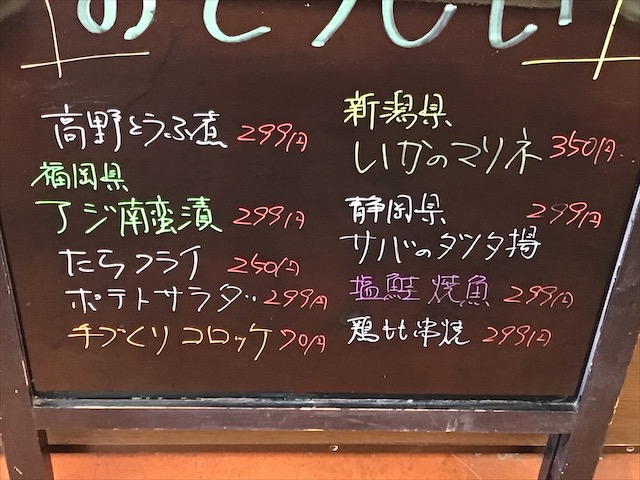 高野とうふ煮 299円
福岡県
アジ南蛮漬 299円
たらフライ 250円
ポテトサラダ 299円
手づくりコロッケ 70円
新潟県
いかのマリネ 350円
静岡県 299円
サバのタツタ揚
塩鮭 焼魚 299円
鶏もも串焼 299円